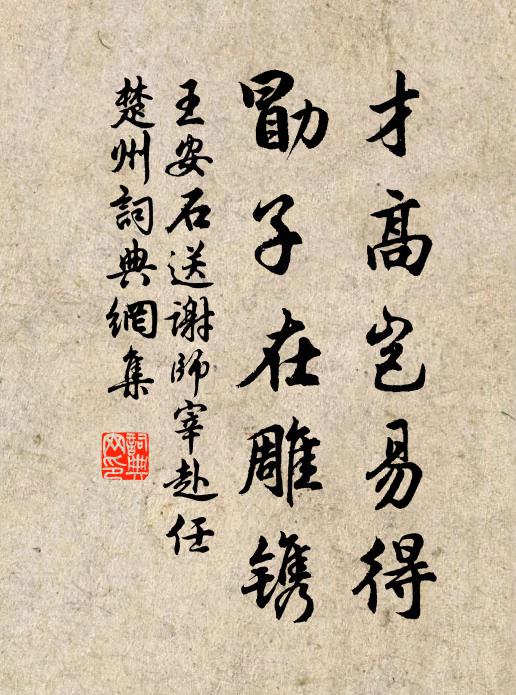 才高岂易得
勖子在雕镌
王安石送谢師宰赴任
楚州詞典網集
詞典
网印